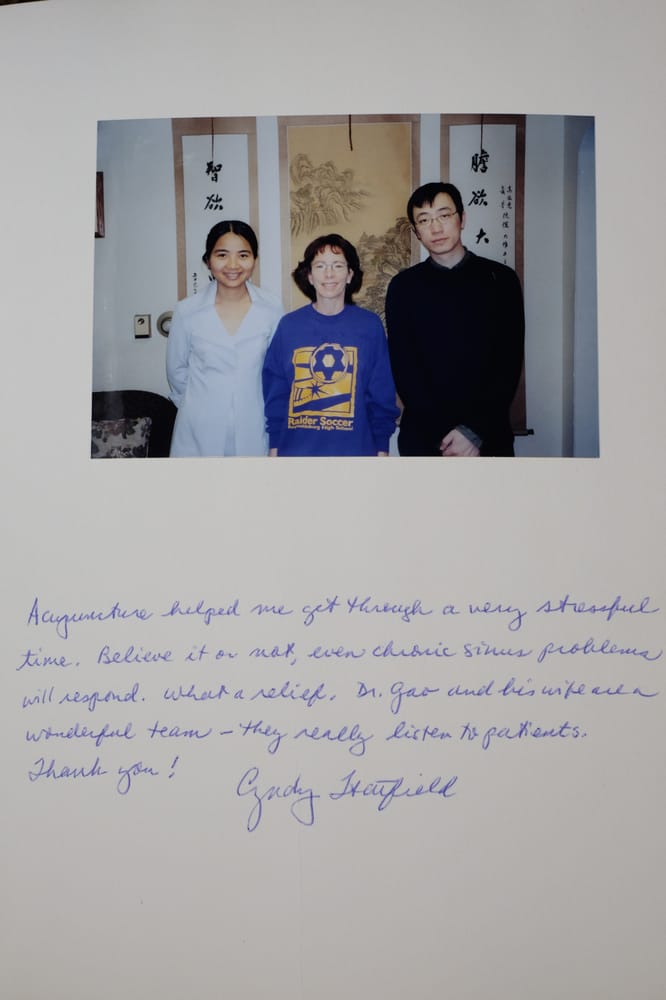 智欲
膽欲大
Raider Soccer
Reynoldsburg High School
Acupuncture helped me get through a very stressful
time. Believe it or not, even chronic sinus problems
will respond. What a relief. Dr. Gao and his wife are a
wonderful team – they really listen to patients.
Thank you!
Cyndy Hatfield